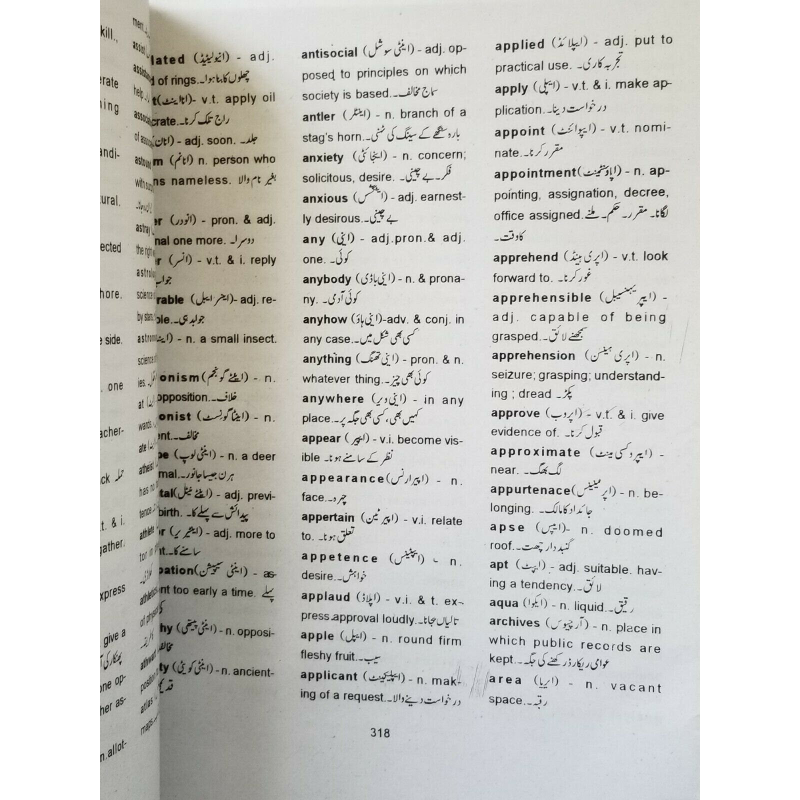 kill.,
erate
ning
andi-
tural.
ected
hore.
e side.
one
acher-
حملہ back
t. & i.
gather.
xpress
give a
one op-
her as-
n.allot-
lated (انیولیٹیڈ) - adj.
d of rings. چھلوں کا بنا ہوا۔
- v.t. apply oil
crate. راج تلک کرنا۔
- adj. soon. جلد۔
m (انانم) n. person who
ns nameless. بغیر نام والا
er (انودر) - pron. & adj.
nal one more. دوسرا۔
r (انسر) - v.t. & i. reply
جواب
rable (اینسر ایبل) adj. re-
ble. جوابدہی۔۔
- n. a small insect.
onism (اینٹے گونجم) n.
opposition. خلاف۔
onist (اینٹاگونسٹ) - n.
ent. مخالف۔۔
pe (اینٹی لوپ) n. a deer
mal. ہرن جیسا جانور۔۔
tal (اینٹے نیٹل) - adj. previ-
birth. پیدائش سے پہلے کا۔
r (اینٹیریر) - adj. more to
nt. سامنے کا۔۔
pation (اینٹی سیپیشن) - as-
nt too early a time. پہلے
hy (اینٹی پیتھی) - n. opposi-
مخالف
ty (اینٹی کویٹی) - n. ancient-
قدیم
antisocial (اینٹی سوشل) - adj. op-
posed to principles on which
society is based. سماج مخالف۔۔
antler (اینٹلر) - n. branch of a
stag's horn. بارہ سنگھے کے سینگ کی ٹہنی۔
anxiety (اینجائٹی) - n. concern;
solicitous, desire. فکر۔بے چینی۔
anxious (اینکشس) - adj. earnest-
ly desirous. بے چینی۔
any (اینی) - adj.pron.& adj.
one. کوئی۔۔
anybody (اینی باڈی) n. & prona-
ny. کوئی آدمی۔۔
anyhow (اینی ہاؤ)-adv. & conj. in
any case. کسی بھی شکل میں۔۔
anything (اینی تھنگ) - pron. & n.
whatever thing. کوئی بھی چیز۔۔
anywhere (اینی ویر) - in any
place. کہیں بھی، کسی بھی جگہ پر۔۔
appear (اپیر) - v.i. become vis-
ible نظر کے سامنے ہونا۔
appearance (اپیرانس) - n.
face. چہرہ۔۔
appertain (اپیرٹین) - v.i. relate
to. تعلق ہونا۔۔
appetence (ایپیٹینس) - n.
desire. خواہش۔۔
applaud (اپلاڈ) - v.i. & t. ex-
press approval loudly. تالیاں بجانا۔۔
apple (ایپل) - n. round firm
fleshy fruit. سیب۔۔
applicant (ایپلیکینٹ) - n. mak-
ing of a request. درخواست دینے والا۔۔
applied (ایپلائڈ) - adj. put to
practical use. تجربہ کاری۔
apply (ایپلی) - v.t. & i. make ap-
plication. درخواست دینا۔
appoint (ایپوائنٹ) - v.t. nomi-
nate. مقرر کرنا۔۔
appointment (اپاؤنٹمینٹ) - n. ap-
pointing, assignation, decree,
office assigned. لگانا۔ مقرر۔ حکم۔ ملنے
کا وقت۔
apprehend (اپری ہینڈ) - v.t. look
forward to. غور کرنا۔۔
apprehensible (ایپر یہنسیبل) -
adj. capable of being
grasped. سمجھنے لائق۔۔
apprehension (اپری ہینسن) - n.
seizure; grasping; understand-
ing ; dread پکڑ۔۔
approve (اپروب) - v.t. & i. give
evidence of. قبول کرنا۔۔
approximate (ایپروکسی میٹ) -
near. لگ بھگ۔۔
appurtenace (اپرٹینینس) - n. be-
longing. جائداد کا مالک۔۔
apse (ایپس) - n. doomed
roof. گنبد دار چھت۔۔
apt (ایپٹ) - adj. suitable. hav-
ing a tendency. لائق۔۔
aqua (ایکوا) - n. liquid. رقیق۔۔
archives (آرچیوس) - n. place in
which public records are
kept. عوامی ریکارڈ رکھنے کی جگہ۔۔
area (ایریا) - n. vacant
space. رقبہ۔۔
318